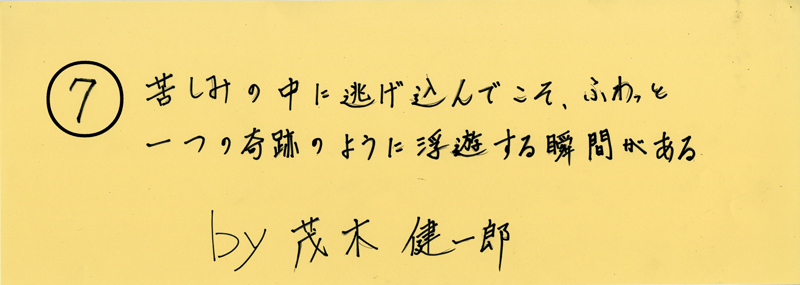 ⑦ 苦しみの中に逃げ込んでこそ、ふわっと
一つの奇跡のように浮遊する瞬間がある
by 茂木健一郎